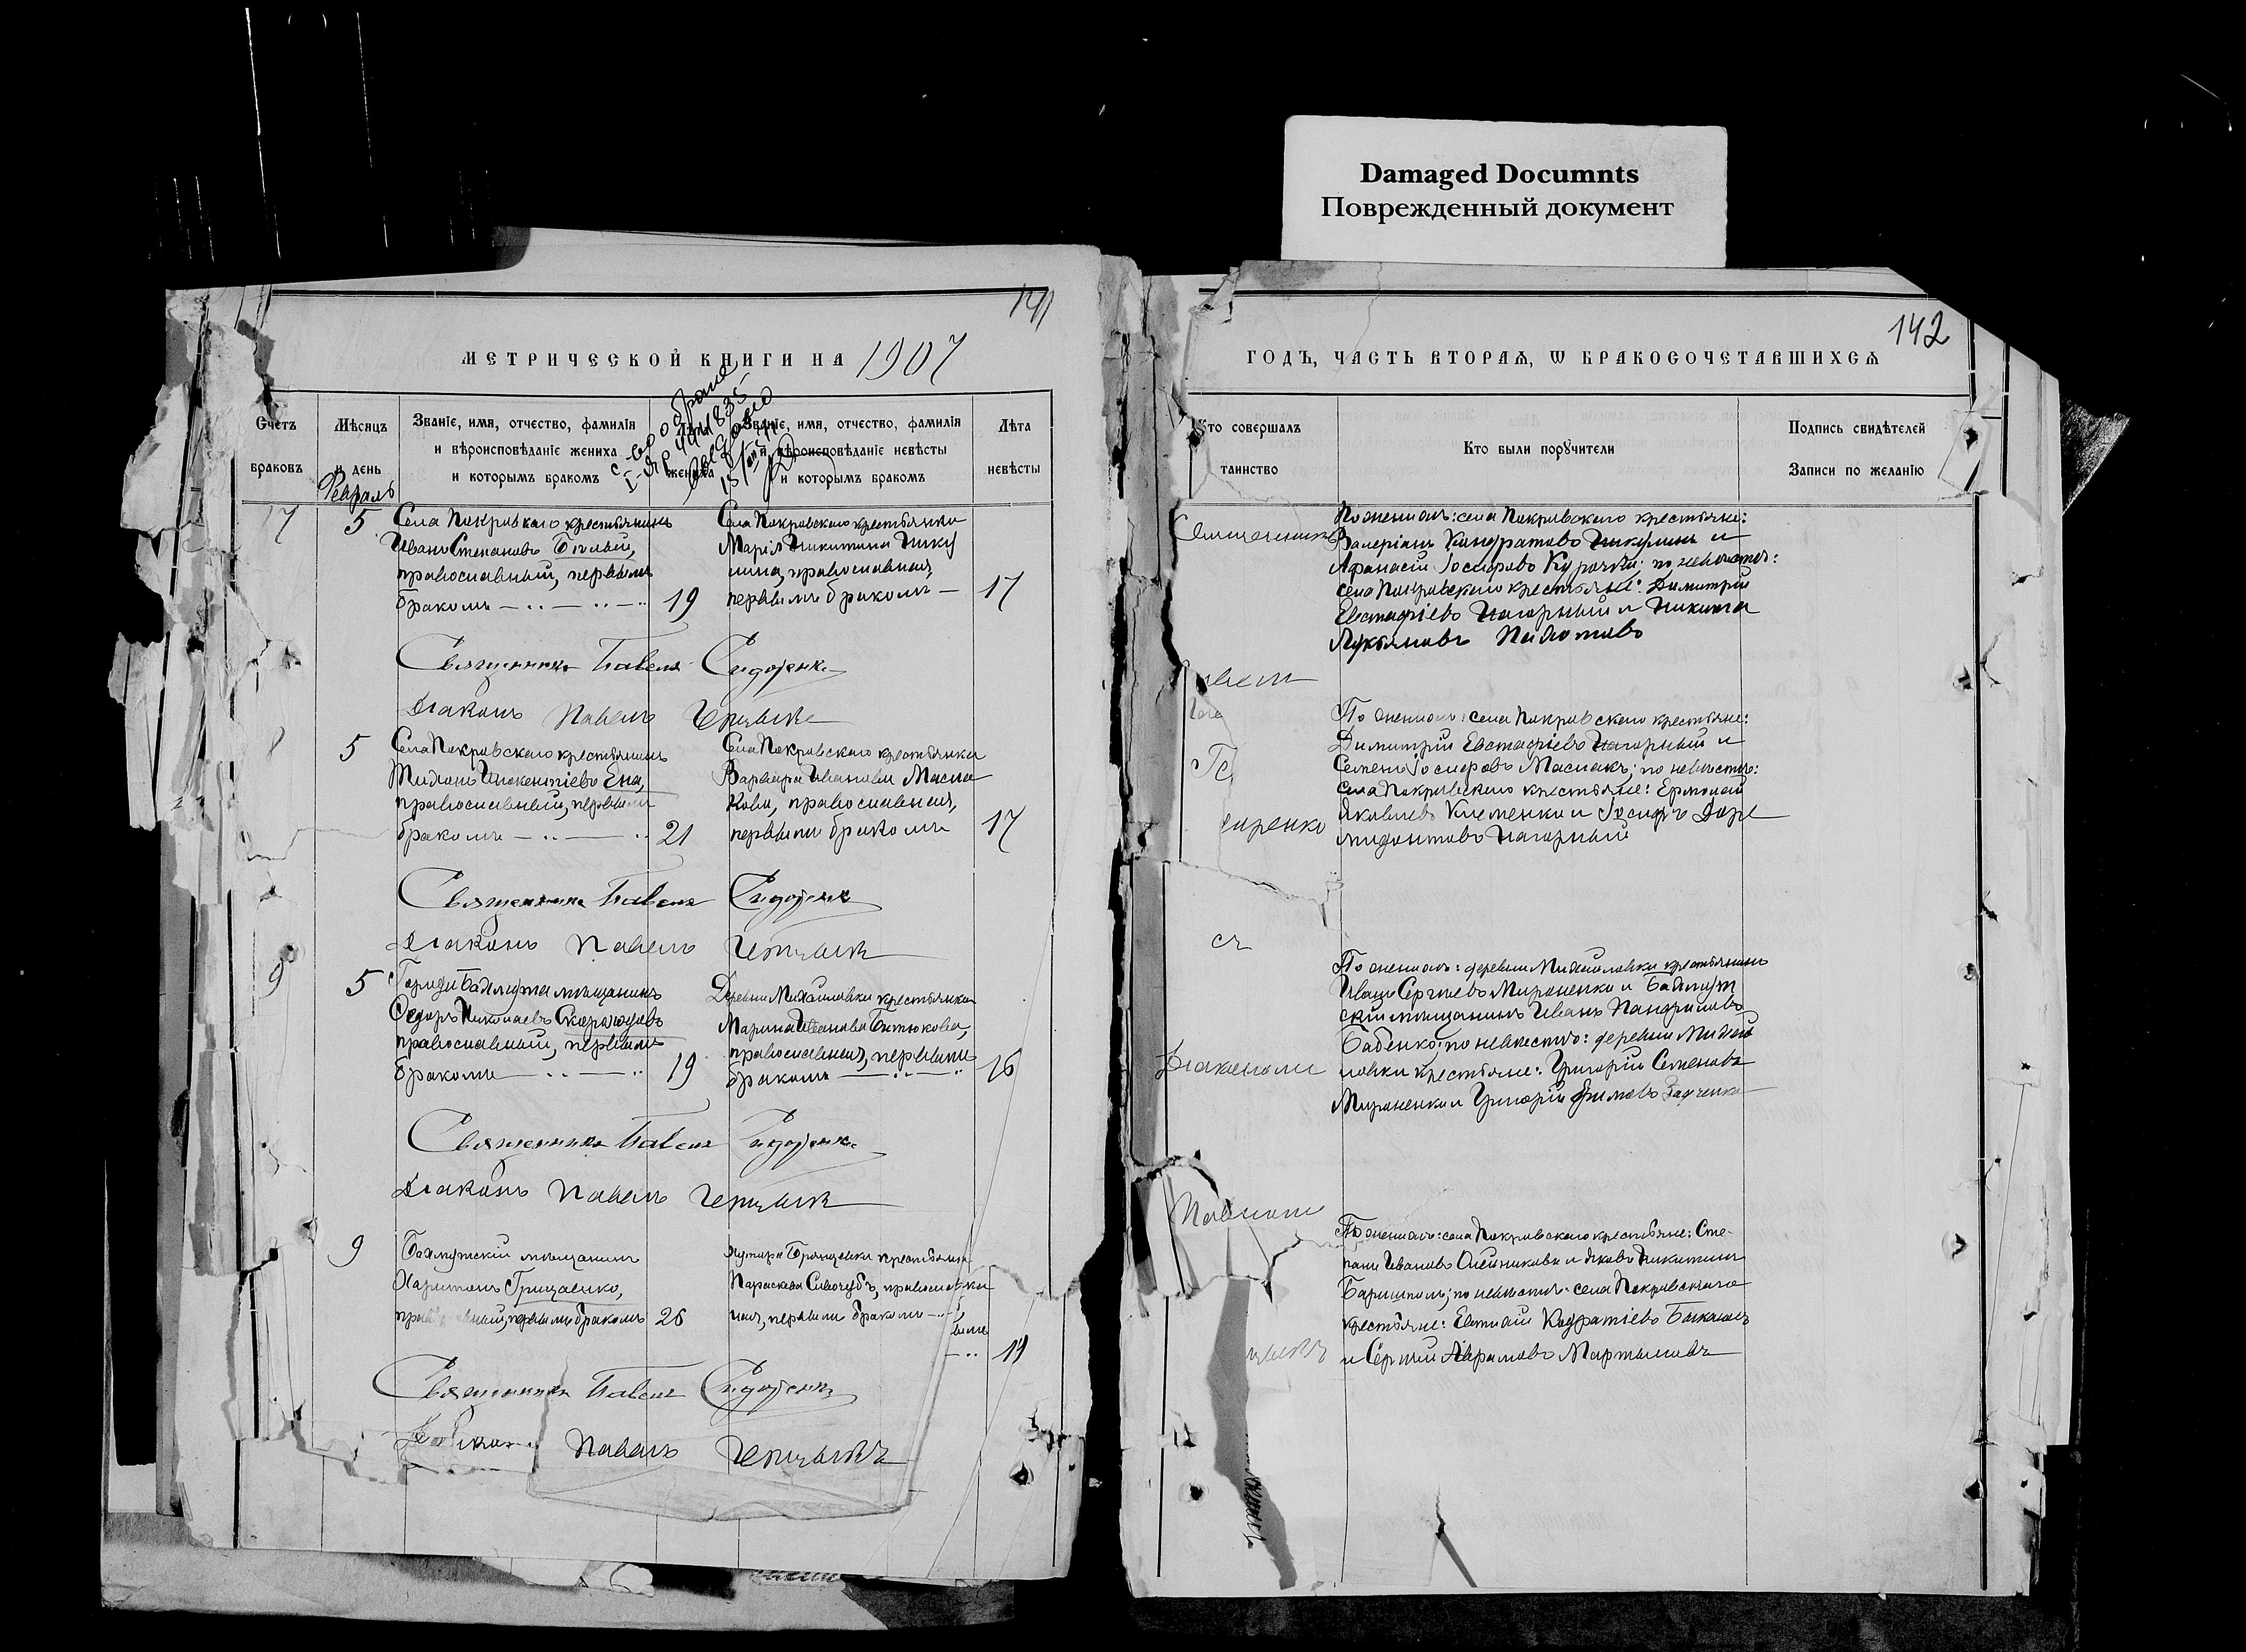 Damaged Documnts
Поврежденный документ
141
МЕТРИЧЕСКОЙ КНИГИ НА 1907
Счетъ браковъ
Мѣсяцъ и день
Февраль
Званіе, имя, отчество, фамилія и вѣроисповѣданіе жениха и которымъ бракомъ
жениха
Званіе, имя, отчество, фамилія и вѣроисповѣданіе невѣсты и которымъ бракомъ
Лѣта невѣсты
7
5
Села Покровскаго крестьянинъ
Иванъ Степановъ Бѣлый,
православный, первымъ
бракомъ
19
Села Покровскаго крестьянка
Марія Никитина Нику
лина, православная,
первымъ бракомъ
17
Священникъ Павелъ Сидоренко
Діаконъ Павелъ
8
5
Села Покровскаго крестьянинъ
Тихонъ Инокентіевъ Ена,
православный, первымъ
бракомъ
21
Села Покровскаго крестьянка
Варвара Иванова Масла
кова, православная,
первымъ бракомъ
17
Священникъ Павелъ Сидоренко
Діаконъ Павелъ
9
5
Города Бахмута мѣщанинъ
Ѳедоръ Николаевъ Скороходовъ
православный, первымъ
бракомъ
19
Деревни Михайловки крестьянка
Марина Иванова Битюкова,
православная, первымъ
бракомъ
16
Священникъ Павелъ Сидоренко
Діаконъ Павелъ
9
Бахмутскій мѣщанинъ
Харитонъ Грищенко,
первымъ бракомъ
26
хутора крестьянка
Параскева Сивочубъ,
первымъ бракомъ
19
Священникъ Павелъ Сидоренко
Павелъ
142
ГОДЪ, ЧАСТЬ ВТОРАЯ, Ѡ БРАКОСОЧЕТАВШИХСЯ
Кто совершалъ таинство
Кто были поручители
Подпись свидѣтелей Записи по желанію
Священникъ
По женихѣ: села Покровскаго крестьяне:
Валеріанъ Кондратовъ Никулинъ и
Афанасій Іосифовъ Курочка; по невѣстѣ:
села Покровскаго крестьяне: Димитрій
Евстафіевъ Нагорный и Никита
Лукьяновъ
По женихѣ: села Покровскаго крестьяне:
Димитрій Евстафіевъ Нагорный и
Семенъ Іосифовъ Маслакъ; по невѣстѣ:
села Покровскаго крестьяне: Ермолай
Яковлевъ Клеменко и Іосифъ Доре
мидонтовъ Нагорный
доренко
съ
По женихѣ: деревни Михайловки крестьянинъ
Иванъ Сергѣевъ Мироненко и Бахмут
скій мѣщанинъ Иванъ Панфиловъ
Бабенко; по невѣстѣ: деревни Михай
ловки крестьяне: Григорій Семеновъ
Мироненко и Григорій Ефимовъ
Діакономъ
Павломъ
По женихѣ: села Покровскаго крестьяне: Сте-
панъ Ивановъ Олейниковъ и Яковъ Никитинъ
по невѣстѣ: села Покровскаго
крестьяне:
и Сергѣй Абрамовъ Мартыновъ